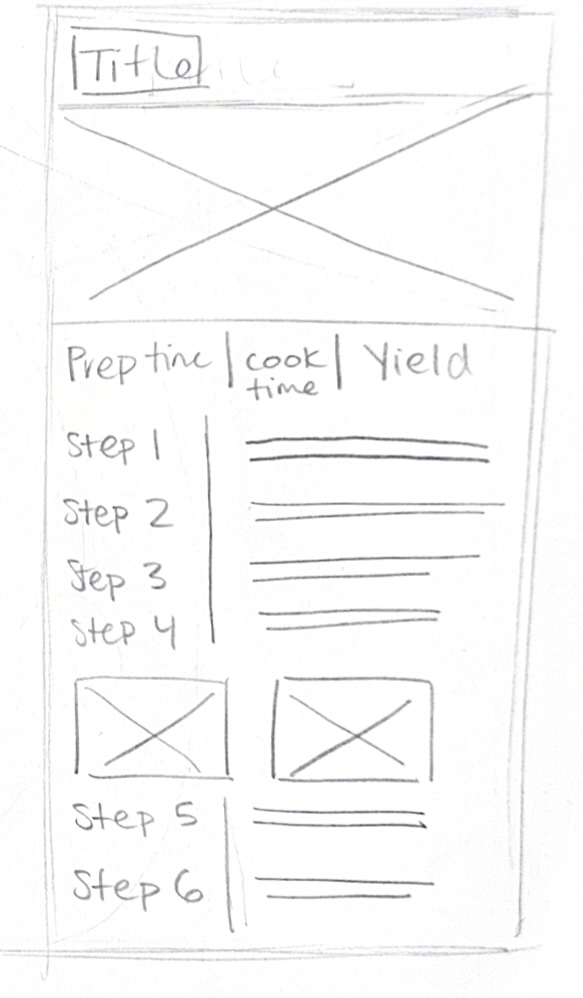 Title
Prep time | cook time | Yield
Step 1
Step 2
Step 3
Step 4
Step 5
Step 6